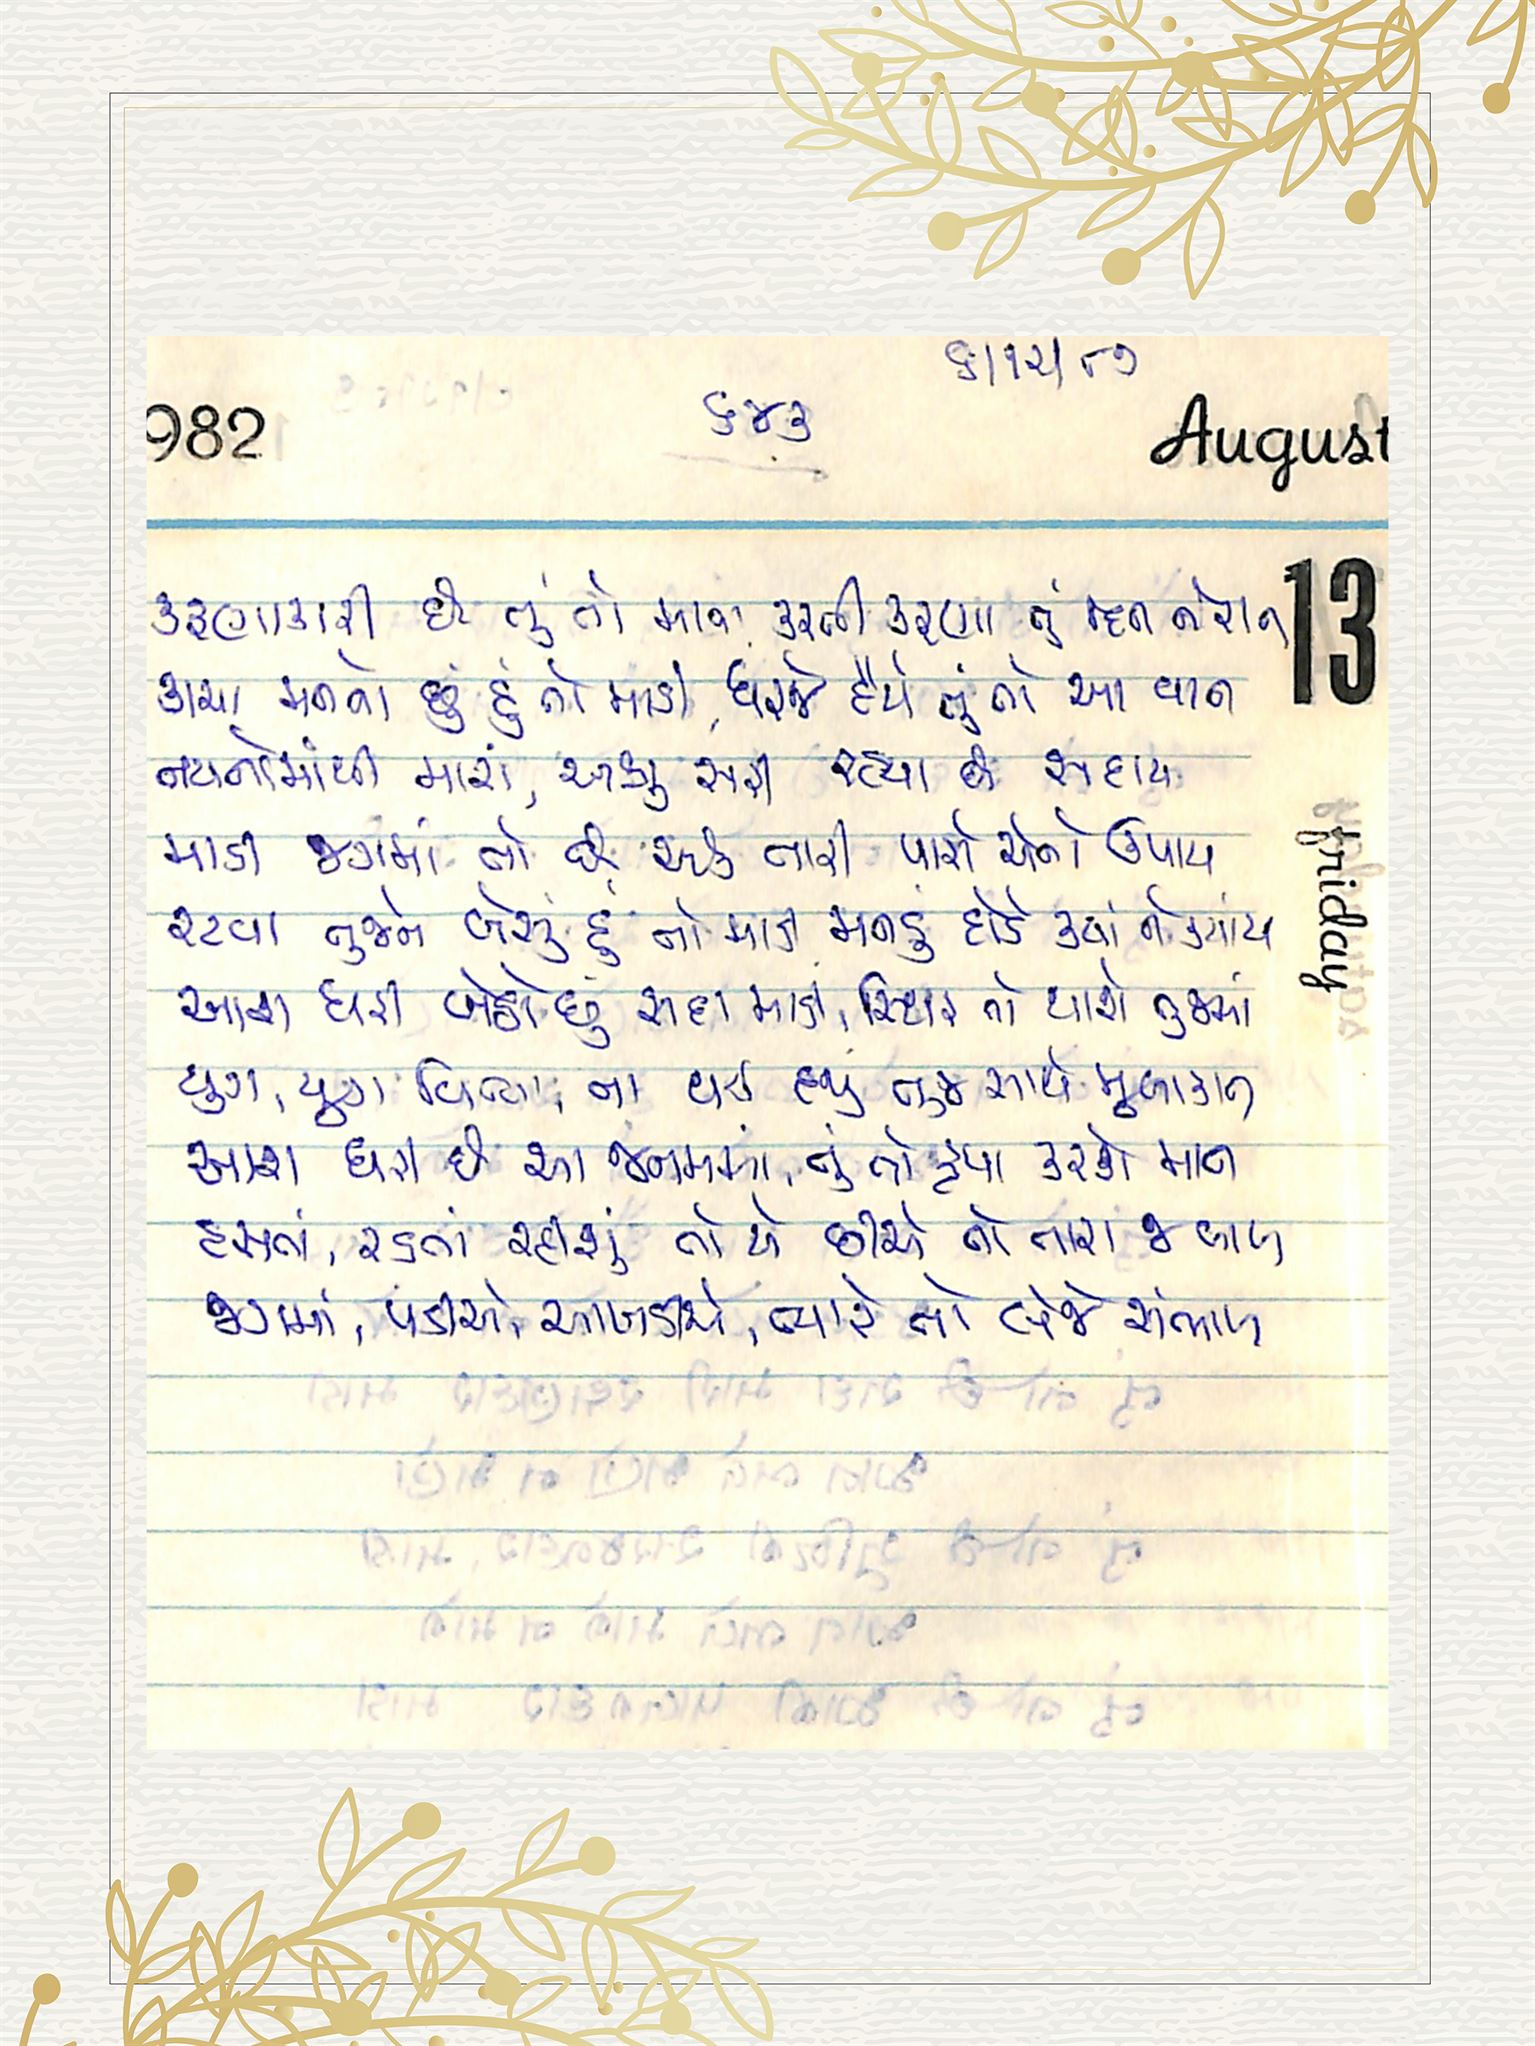 ૬/૧૨/૮૭
૬૪૩
982
August
13
friday
કરૂણાકારી છે તું તો માવા કરતી કરૂણા તું દિન ને રાત
કાચા મનનો છું હું તો માડી, ધરજે હૈયે તું તો આ વાત
નયનોમાંથી મારાં, અશ્રુ સરી રહ્યા છે સદાય
માડી જગમાં તો છે એક તારી પાસે એનો ઉપાય
રટવા તુજને બેસું હું તો માડી મનડું દોડે ક્યાં ને ક્યાંય
આશા ધરી બેઠો છું સદા માડી, સ્થિર તો થાશે તુજમાં
યુગ, યુગ વિત્યા, ના થઈ હજુ તુજ સાથે મુલાકાત
આશા ધરી છે આ જનમમાં, તું તો કૃપા કરશે માત
હસતાં, રડતાં રહીશું તો યે છીએ તો તારા જ બાળ
જગમાં, પડીએ, આખડીએ, ત્યારે તો લેજે સંભાળ